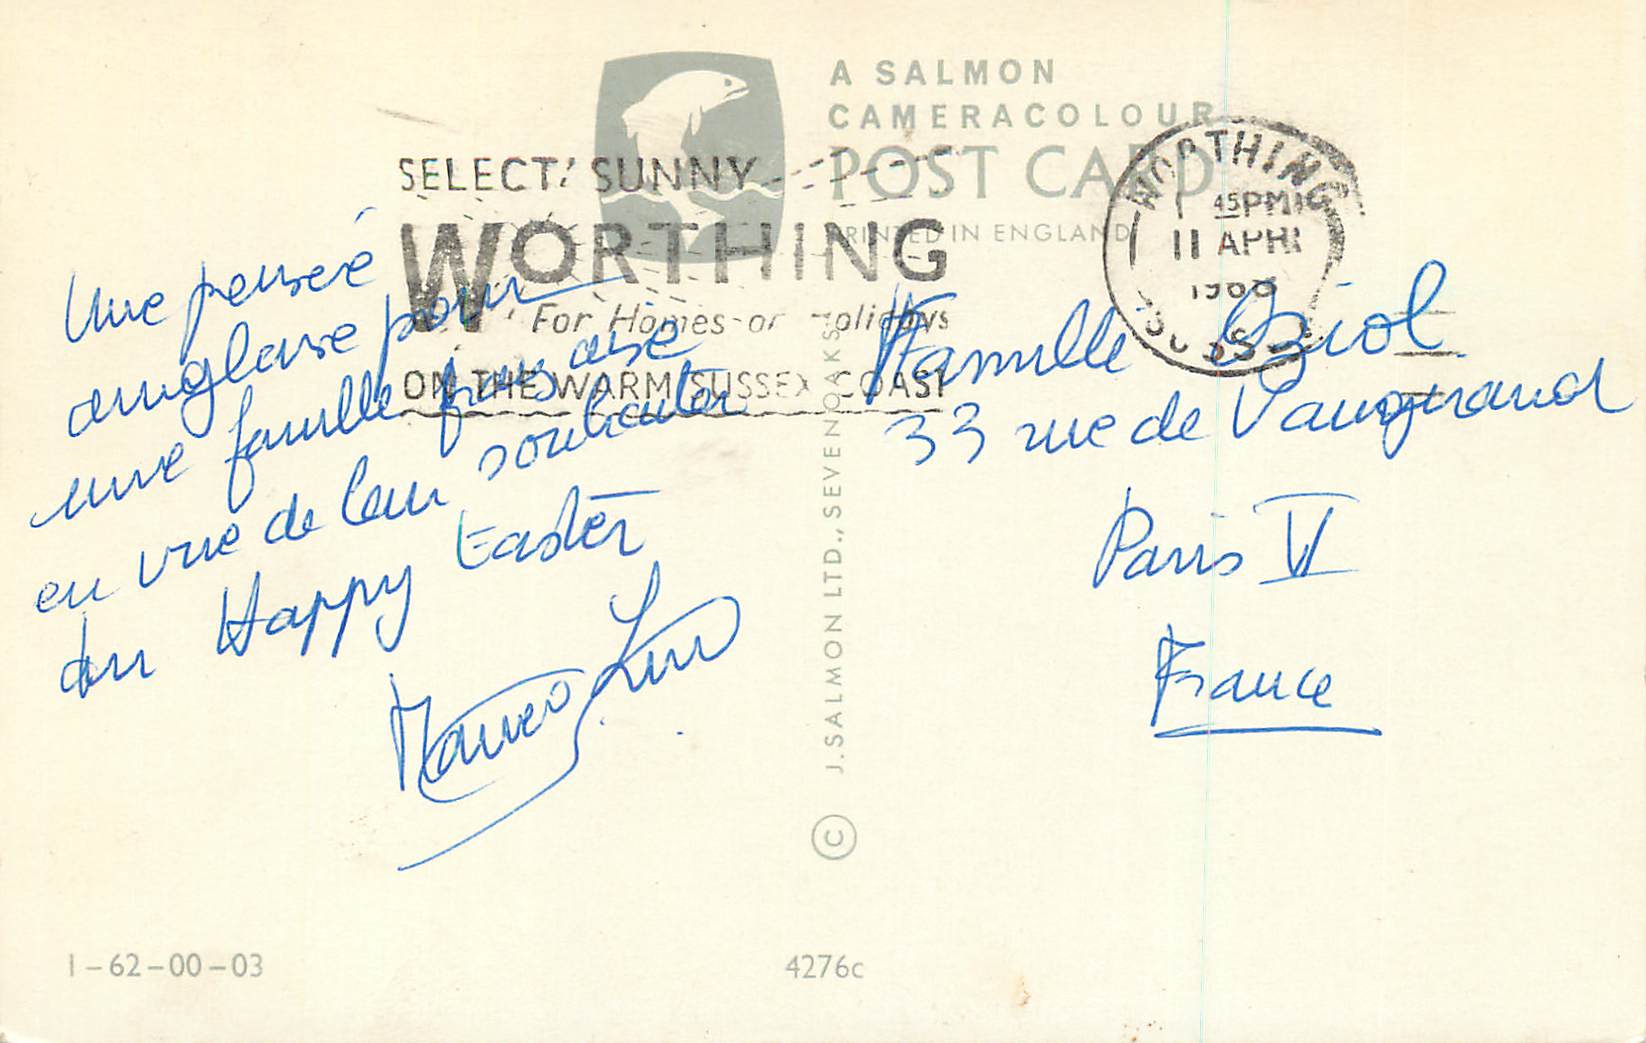 A SALMON
CAMERACOLOUR
POST CARD
PRINTED IN ENGLAND
SELECT SUNNY
WORTHING
For Homes or Holidays
ON THE WARM SUSSEX COAST
WORTHING
45 PM
11 APR
SUSSEX
Une pensée
anglaise pour
une famille française
en vue de leur souhaiter
un Happy Easter
Famille
33 rue de Vaugirard
Paris VI
France
J. SALMON LTD., SEVENOAKS
©
1-62-00-03
4276c